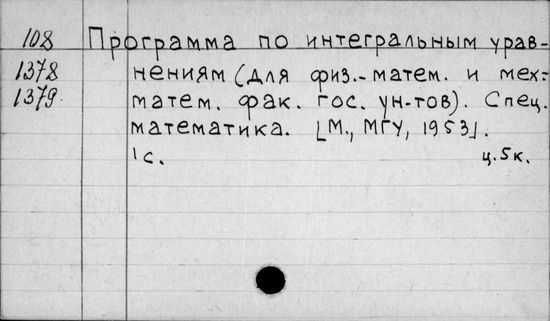 108 Программа по интегральным урав-
1378 нениям (для физ.-матем. и мех.-
1379. матем. фак. гос. ун-тов). Спец.
математика. [М., МГУ, 1953].
1 с. ц. 5 к.